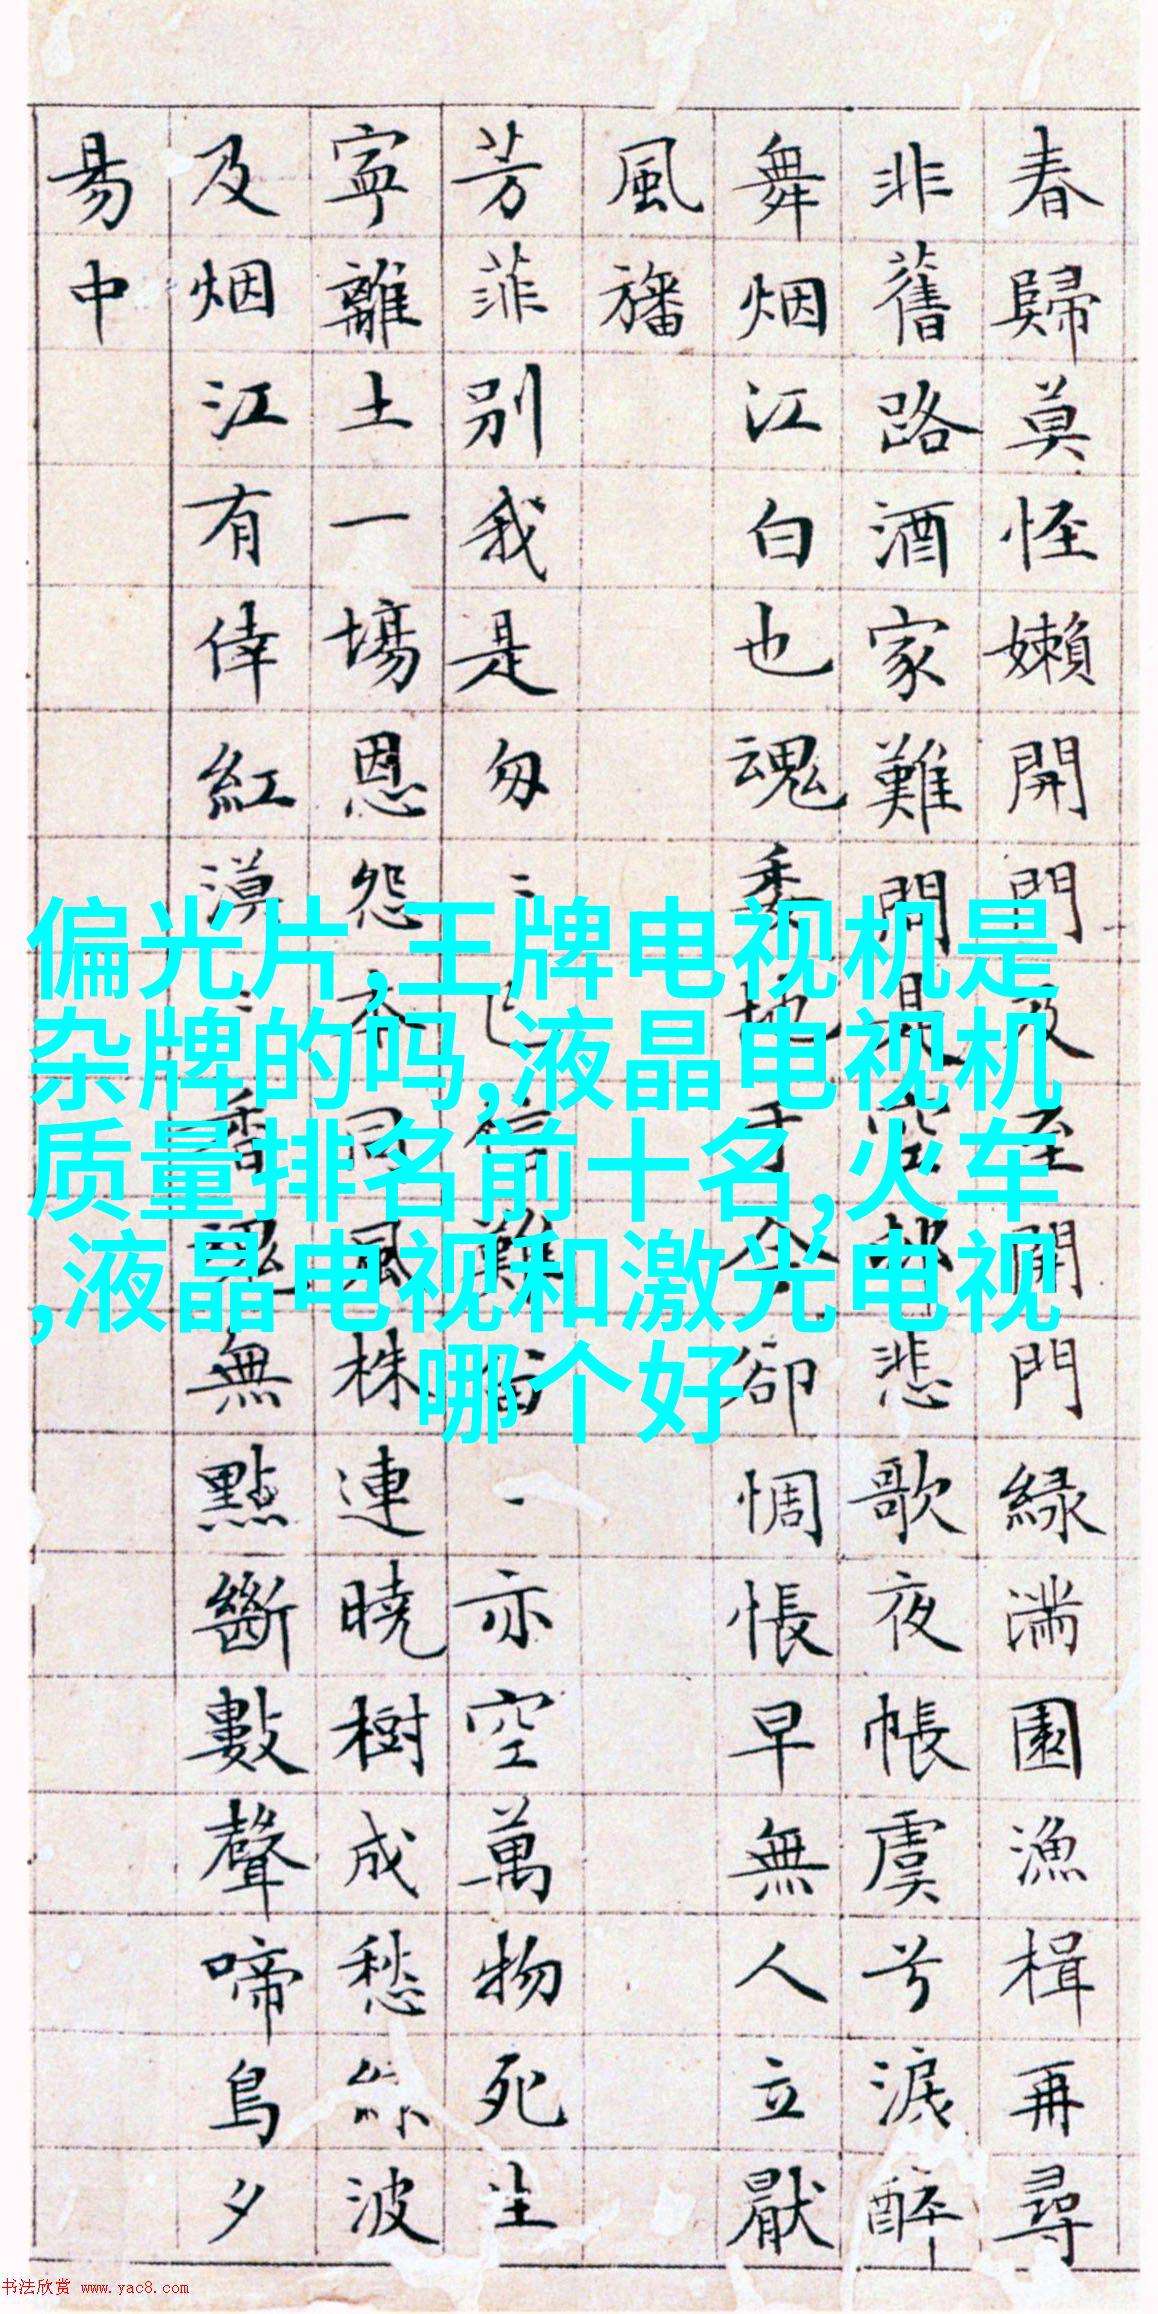 春歸莫怪嬾開門及至開門綠滿園漁楫再尋
非舊路酒家難問是空邨悲歌夜帳虞兮淚醉
舞烟江白也魂委地于今卻惆悵早無人立厭
風旛
芳菲別我是匆〻已信難留一亦空萬物死生
寧離土一場恩怨本同風株連曉樹成愁波
及烟江有倖紅漠〻香魂無點斷數聲啼鳥夕
昜中
偏光片,王牌电视机是
杂牌的吗,液晶电视机
质量排名前十名,火车
,液晶电视和激光电视
哪个好
书法欣赏 www.yac8.com